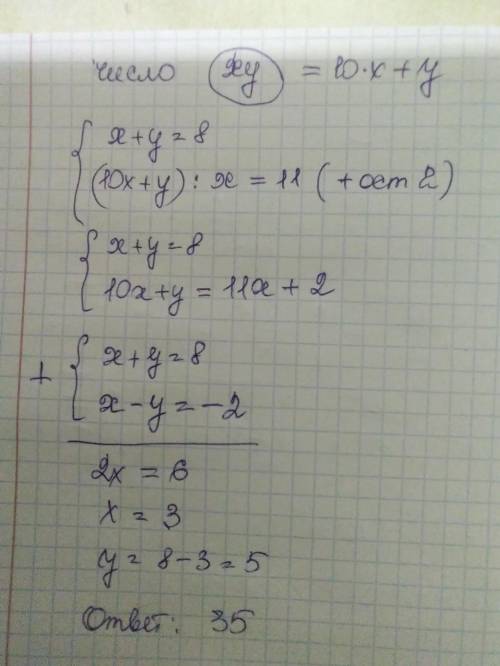 число xy = 10·x+y
x+y=8
(10x+y) : x = 11 (+ост 2)
x+y=8
10x+y = 11x+2
+ x+y=8
x-y=-2
2x = 6
x = 3
y = 8-3=5
Ответ: 35